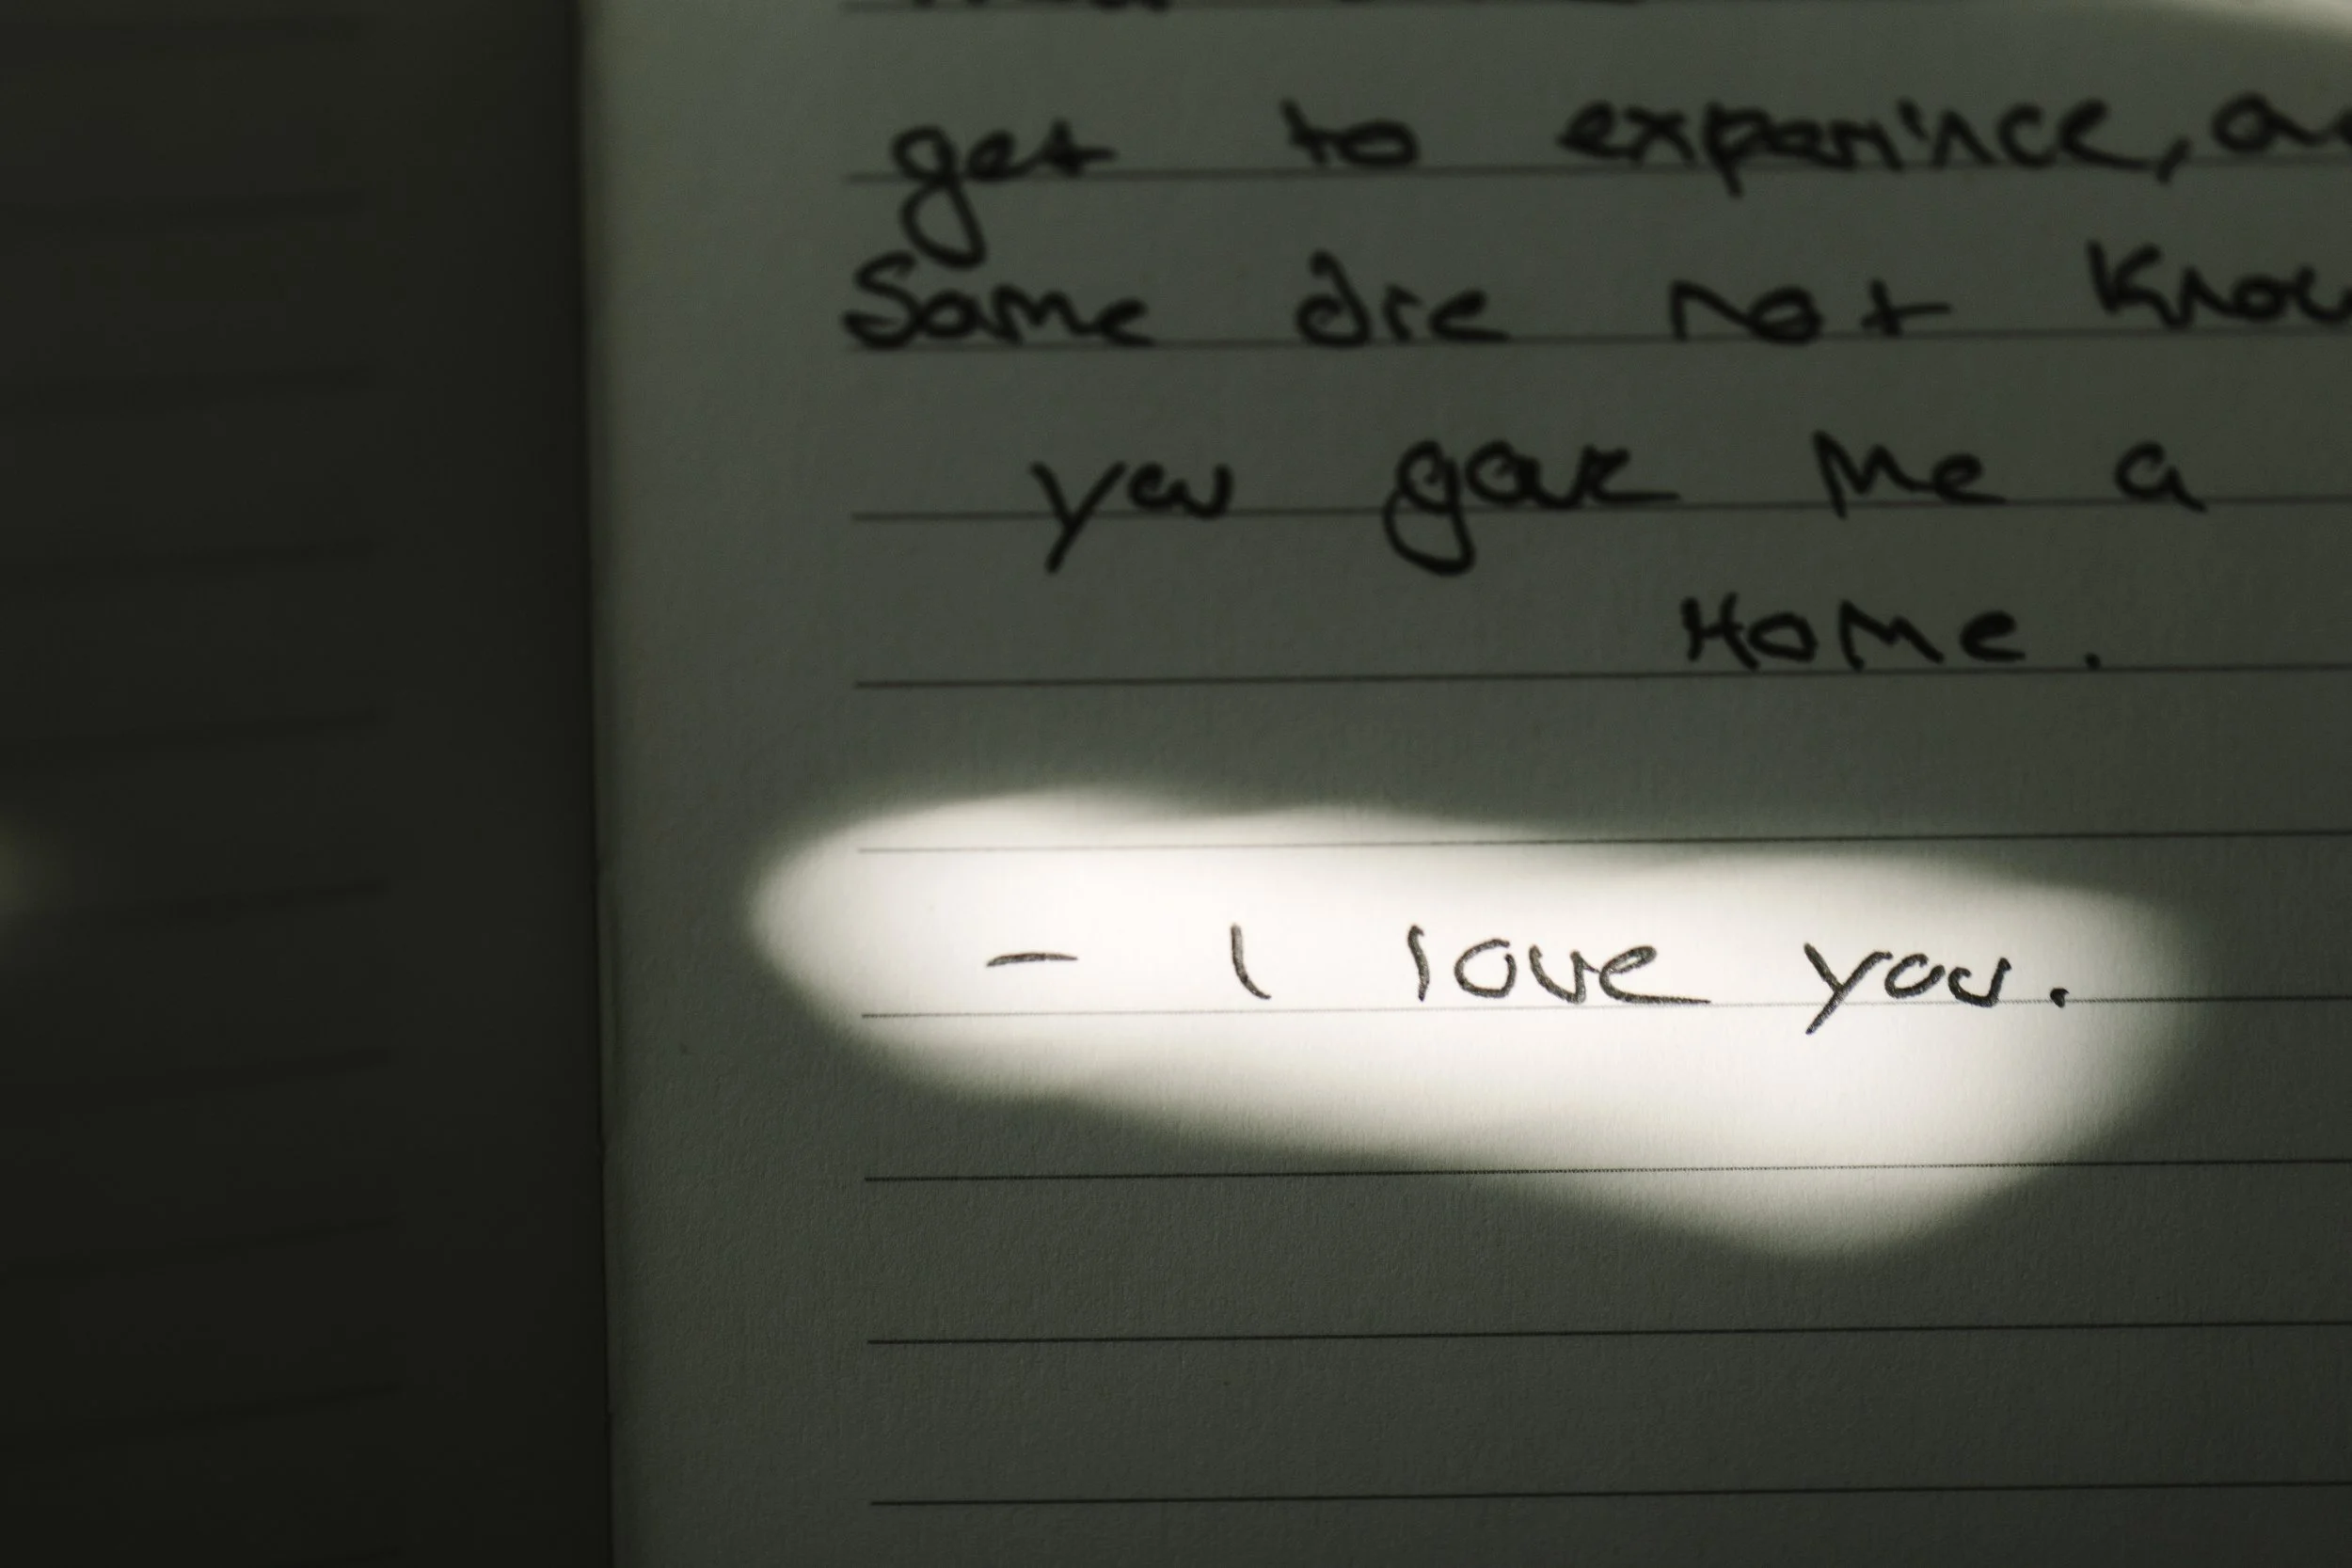 get to experince, a
Some die not know
you gave me a
Home.
- I love you.